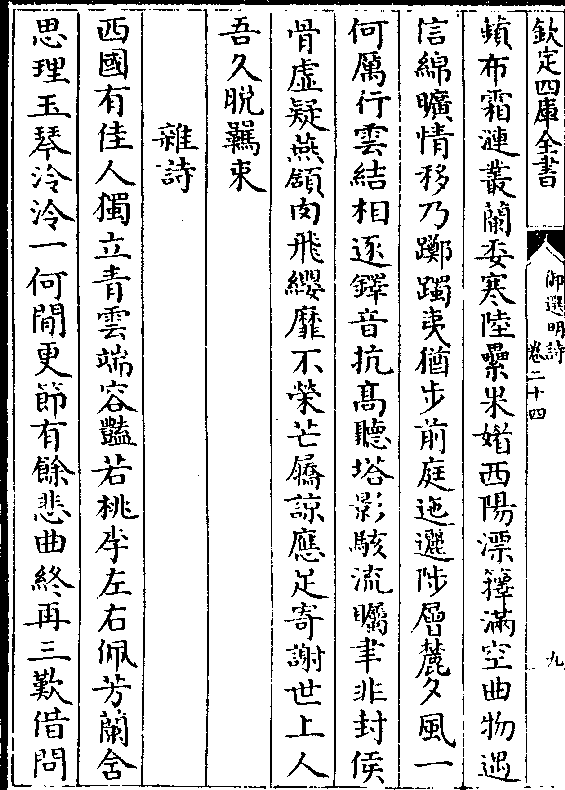 欽定四庫全書
御選明詩
卷二十四
九
蘋布霜漣叢蘭委寒陸纍果婚西陽漂籜滿空曲物遇
信綿曠情移乃躑躅夷猶步前庭迤邐陟層麓夕風一
何厲行雲結相逐鐸音抗高聽塔影駭流矚聿非封侯
骨虛疑燕頷肉飛纓靡不榮芒屩諒應足寄謝世上人
吾久脫羈束
雜詩
西國有佳人獨立青雲端容豔若桃李左右佩芳蘭含
思理玉琴泠泠一何閒更節有餘悲曲終再三歎借問